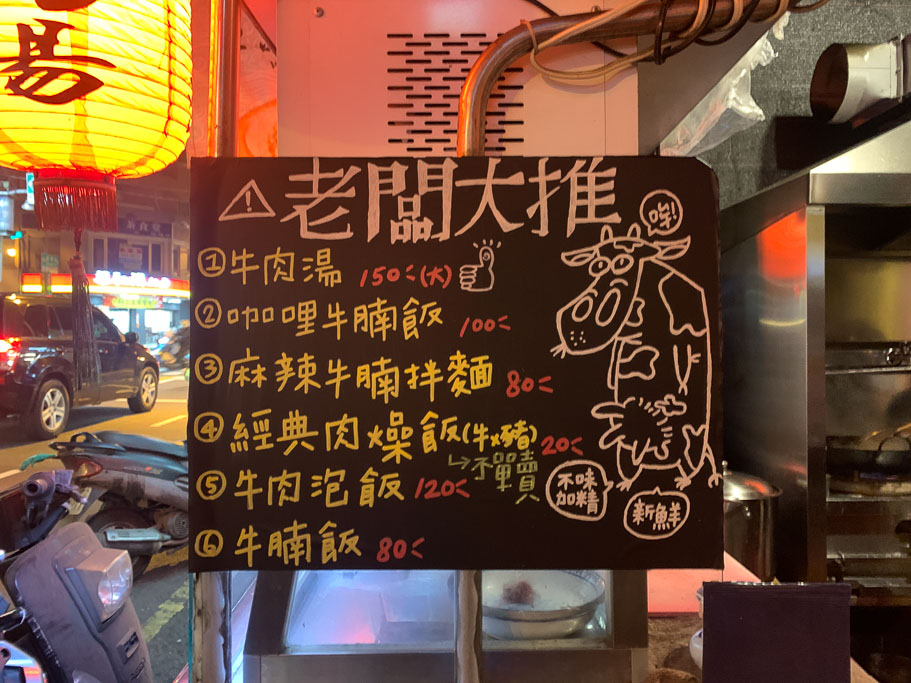 昜
老闆大推
哞!
①牛肉湯 150く(大)
②咖哩牛腩飯 100く
③麻辣牛腩拌麵 80く
④經典肉燥飯(牛x豬) 20く
↳不單賣
⑤牛肉泡飯 120く
⑥牛腩飯 80く
不味
加精
新鮮